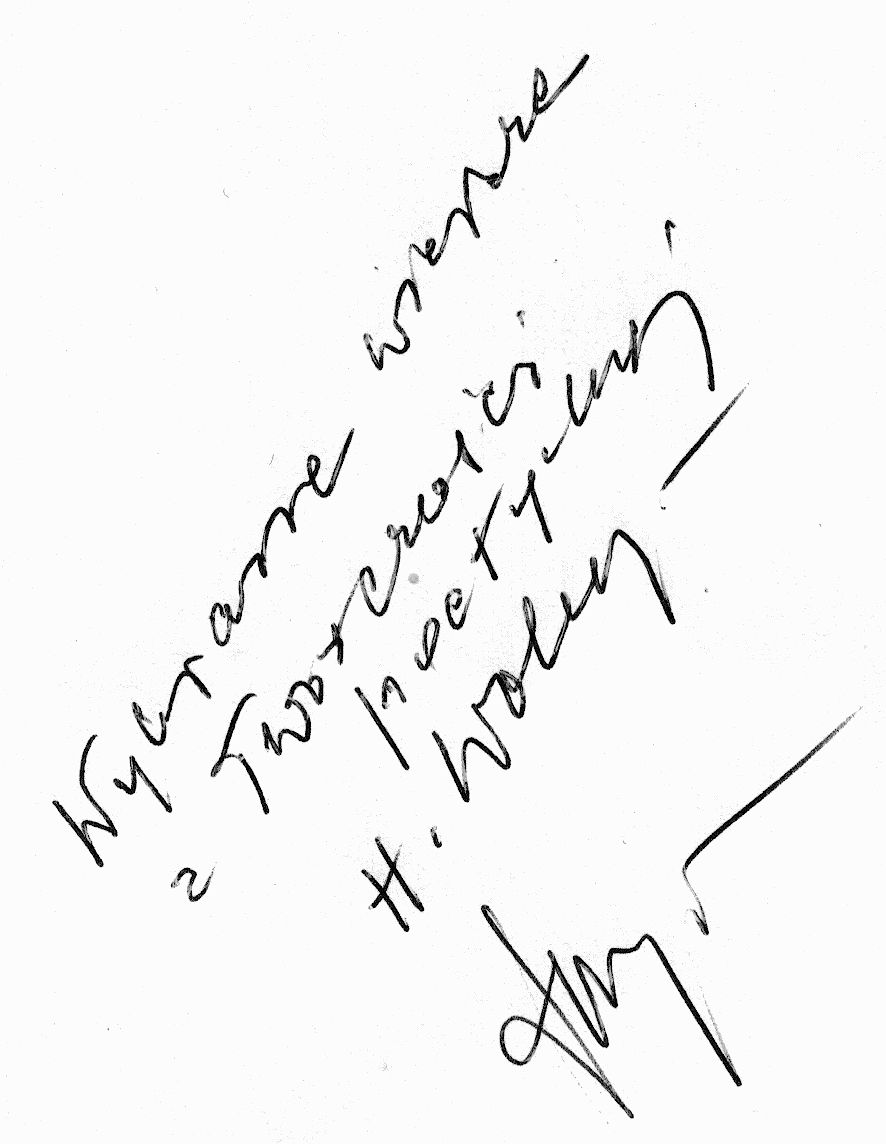 Wybrane wiersze
z Twórczości
poetyckiej
H. Wolny